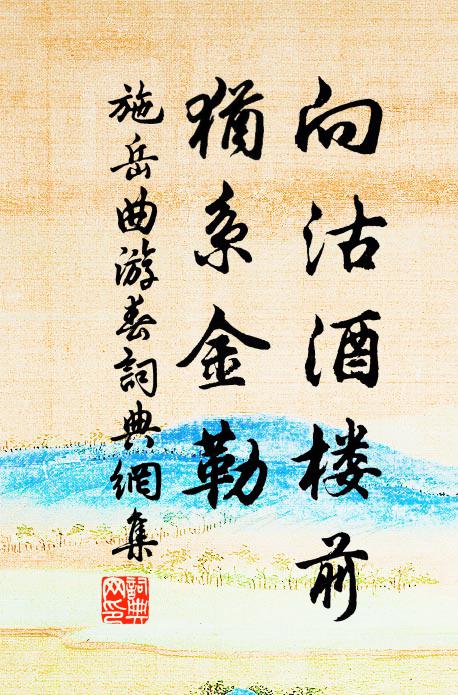 向沽酒楼前
犹系金勒
施岳曲游春詞典網集
詞典